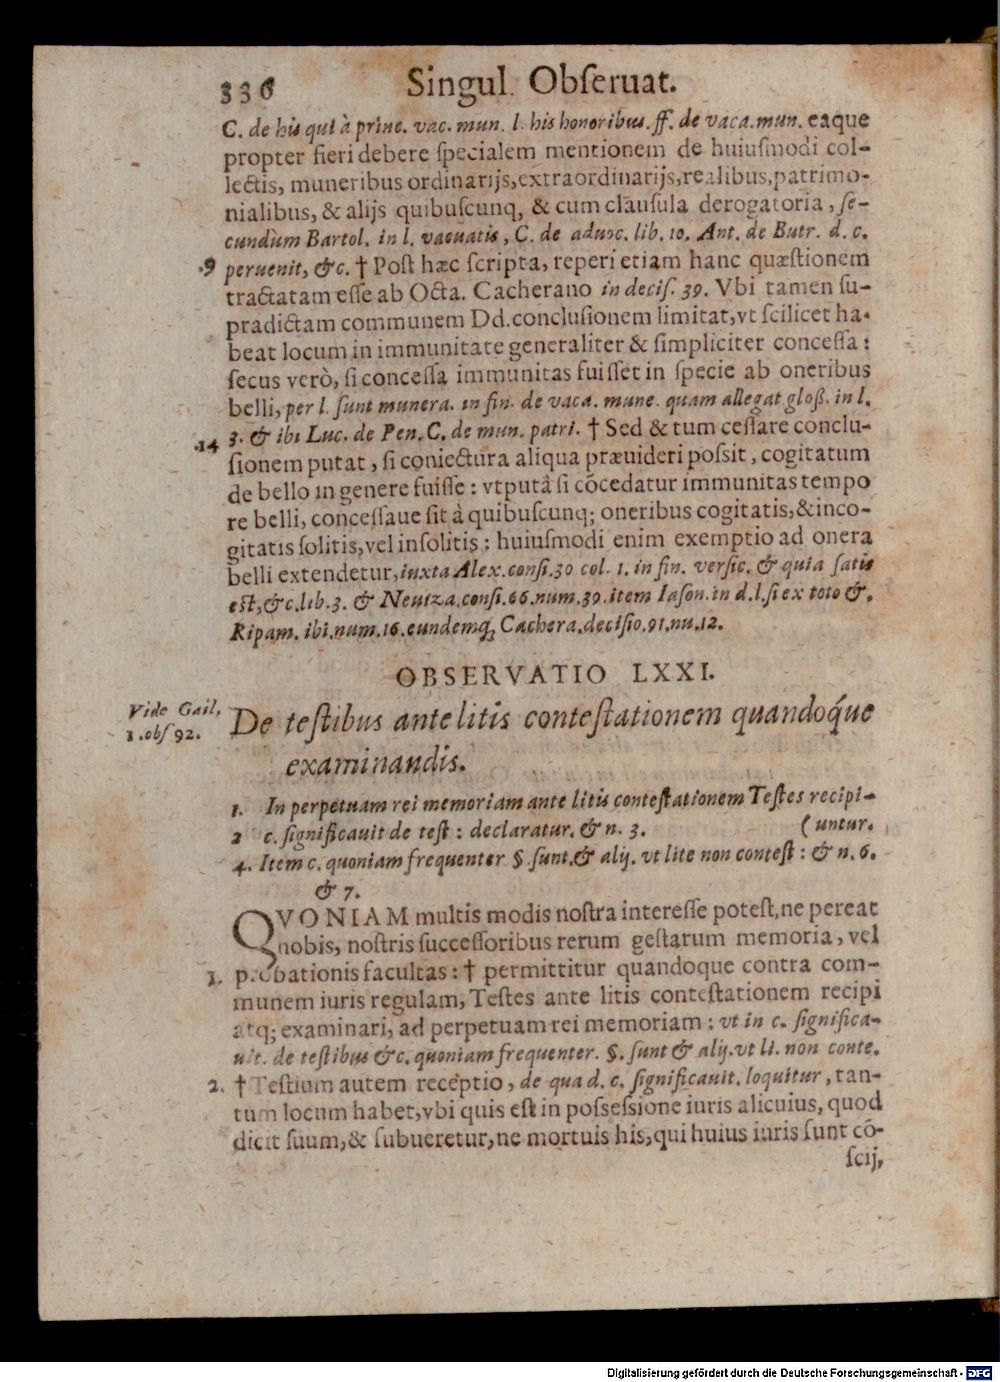 336 Singul. Obſeruat.
C. de his qui à princ. vac. mun. l. his honoribus. ff. de vaca.mun. eaque
propter fieri debere ſpecialem mentionem de huiuſmodi col-
lectis, muneribus ordinarijs,extraordinarijs,realibus,patrimo-
nialibus, & alijs quibuſcunq, & cum clauſula derogatoria, ſe-
cundùm Bartol. in l. vacuatis, C. de aduoc. lib. 10. Ant. de Butr. d. c.
.9 peruenit, &c. † Poſt hæc ſcripta, reperi etiam hanc quæſtionem
tractatam eſſe ab Octa. Cacherano in deciſ. 39. Vbi tamen ſu-
pradictam communem Dd.concluſionem limitat,vt ſcilicet ha-
beat locum in immunitate generaliter & ſimpliciter conceſſa:
ſecus verò, ſi conceſſa immunitas fuiſſet in ſpecie ab oneribus
belli, per l. ſunt munera. in fin. de vaca. mune. quam allegat gloß. in l.
.14 3. & ibi Luc. de Pen. C. de mun. patri. † Sed & tum ceſſare conclu-
ſionem putat, ſi coniectura aliqua præuideri poſsit, cogitatum
de bello in genere fuiſſe: vtputâ ſi cōcedatur immunitas tempo
re belli, conceſſaue ſit à quibuſcunq; oneribus cogitatis,&inco-
gitatis ſolitis,vel inſolitis: huiuſmodi enim exemptio ad onera
belli extendetur,iuxta Alex.conſi.30 col. 1. in fin. verſic. & quia ſatis
eſt,&c.lib.3. & Neuiza.conſi.66.num.39.item Iaſon.in d.l.ſi ex toto &.
Ripam. ibi.num.16.eundemq, Cachera.deciſio.91.nu.12.
OBSERVATIO LXXI.
Vide Gail,
1.obſ 92.
De teſtibus ante litis conteſtationem quandoq́ue
examinandis.
1. In perpetuam rei memoriam ante litis conteſtationem Teſtes recipi-
2 c. ſignificauit de teſt: declaratur. & n. 3. (untur.
4. Item c. quoniam frequenter §. ſunt.& alij. vt lite non conteſt: & n. 6.
& 7.
QVONIAM multis modis noſtra intereſſe poteſt,ne pereat
nobis, noſtris ſucceſſoribus rerum geſtarum memoria, vel
1. probationis facultas: † permittitur quandoque contra com-
munem iuris regulam, Teſtes ante litis conteſtationem recipi
atq; examinari, ad perpetuam rei memoriam: vt in c. ſignifica-
uit. de teſtibus &c. quoniam frequenter. §. ſunt & alij.vt li. non conte.
2. † Teſtium autem receptio, de qua d. c. ſignificauit. loquitur, tan-
tum locum habet,vbi quis eſt in poſſeſsione iuris alicuius, quod
dicit ſuum,& ſubueretur,ne mortuis his,qui huius iuris ſunt cō-
ſcij,
Digitalisierung gefördert durch die Deutsche Forschungsgemeinschaft - DFG